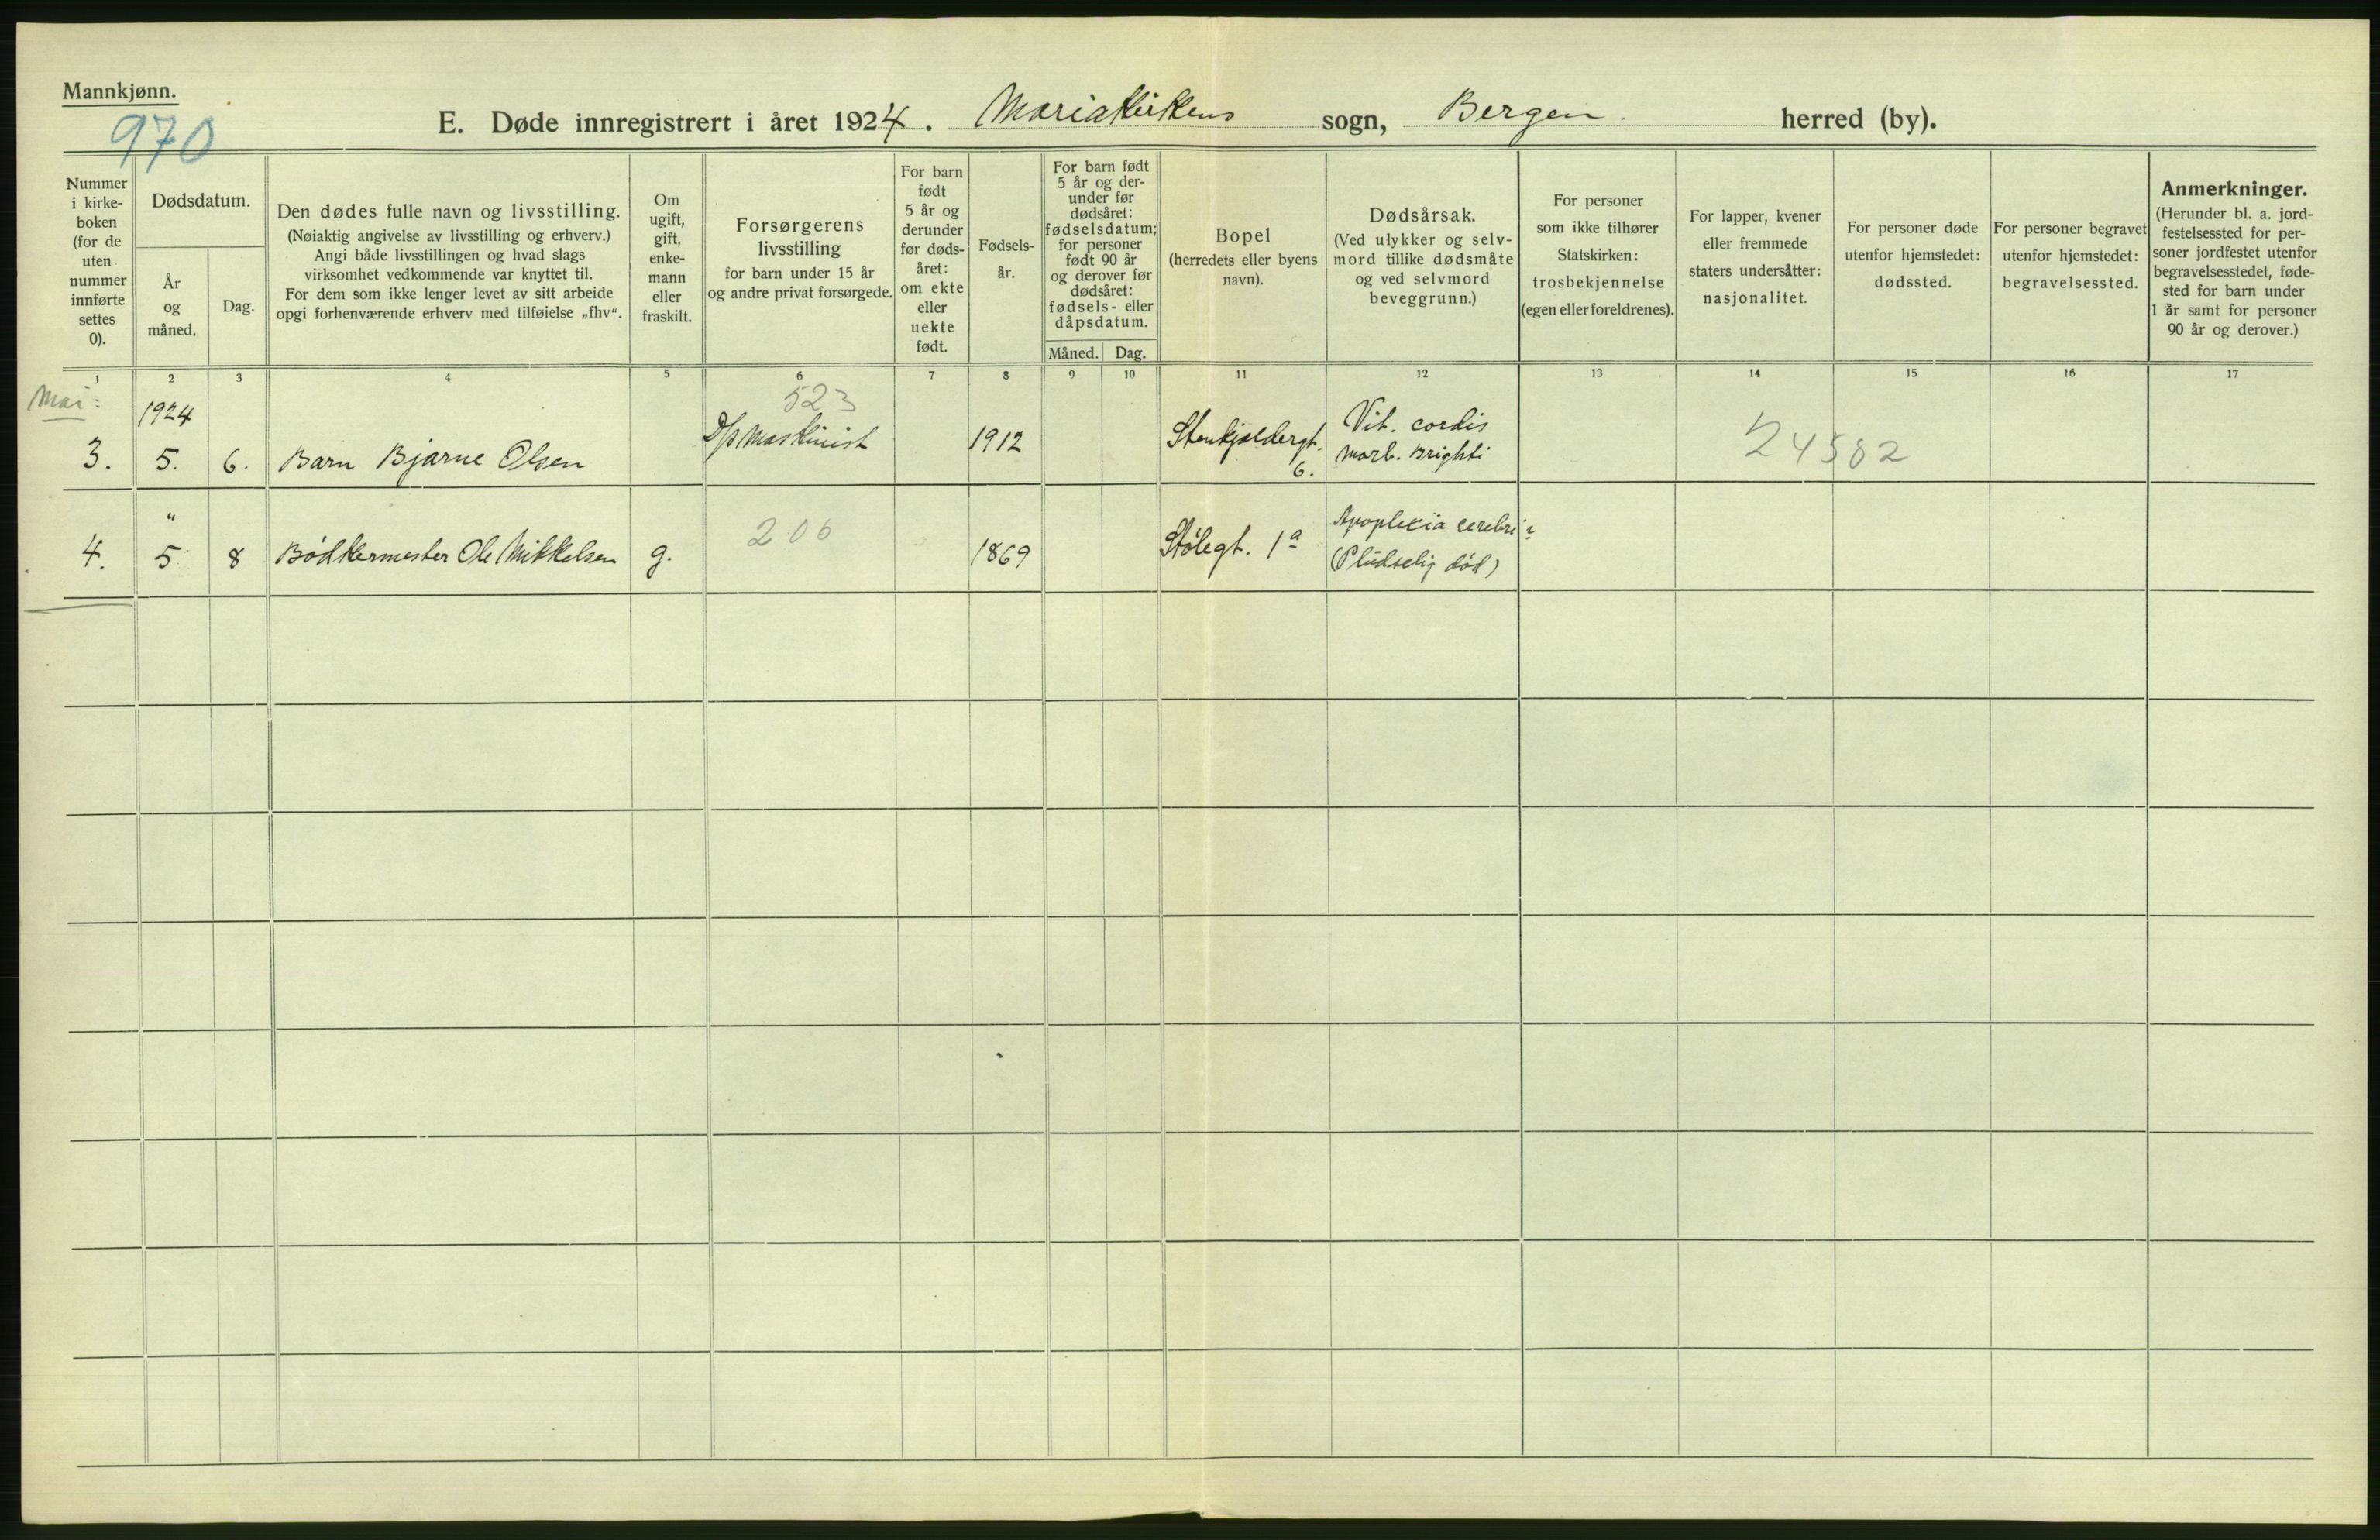 Mannkjønn.
970
E. Døde innregistrert i året 1924. Mariakirkens sogn, Bergen. herred (by).
Nummer
i kirke-
boken
(for de
uten
nummer
innførte
settes
0).
Dødsdatum.
År
og
måned.
Dag.
Den dødes fulle navn og livsstilling.
(Nøiaktig angivelse av livsstilling og erhverv.)
Angi både livsstillingen og hvad slags
virksomhet vedkommende var knyttet til.
For dem som ikke lenger levet av sitt arbeide
opgi forhenværende erhverv med tilføielse „fhv“.
Om
ugift,
gift,
enke-
mann
eller
fraskilt.
Forsørgerens
livsstilling
for barn under 15 år
og andre privat forsørgede.
For barn
født
5 år og
derunder
før døds-
året:
om ekte
eller
uekte
født.
Fødsels-
år.
For barn født
5 år og der-
under før
dødsåret:
fødselsdatum;
for personer
født 90 år
og derover før
dødsåret:
fødsels- eller
dåpsdatum.
Måned. Dag.
Bopel
(herredets eller byens
navn).
Dødsårsak.
(Ved ulykker og selv-
mord tillike dødsmåte
og ved selvmord
beveggrunn.)
For personer
som ikke tilhører
Statskirken:
trosbekjennelse
(egen eller foreldrenes).
For lapper, kvener
eller fremmede
staters undersåtter:
nasjonalitet.
For personer døde
utenfor hjemstedet:
dødssted.
For personer begravet
utenfor hjemstedet:
begravelsessted.
Anmerkninger.
(Herunder bl. a. jord-
festelsessted for per-
soner jordfestet utenfor
begravelsesstedet, føde-
sted for barn under
1 år samt for personer
90 år og derover.)
1 2 3 4 5 6 7 8 9 10 11 12 13 14 15 16 17
Mai:
1924
523
3. 5. 6. Barn Bjarne Olsen D/s Maskinist 1912 Stenkjeldergt. 6. Vit. cordis
Morb. Brighti
24582
4. " 5 8 Bødkermester Ole Mikkelsen g. 206 1869 Stølegt. 1a Apoplexia cerebri?
(Pludselig død)